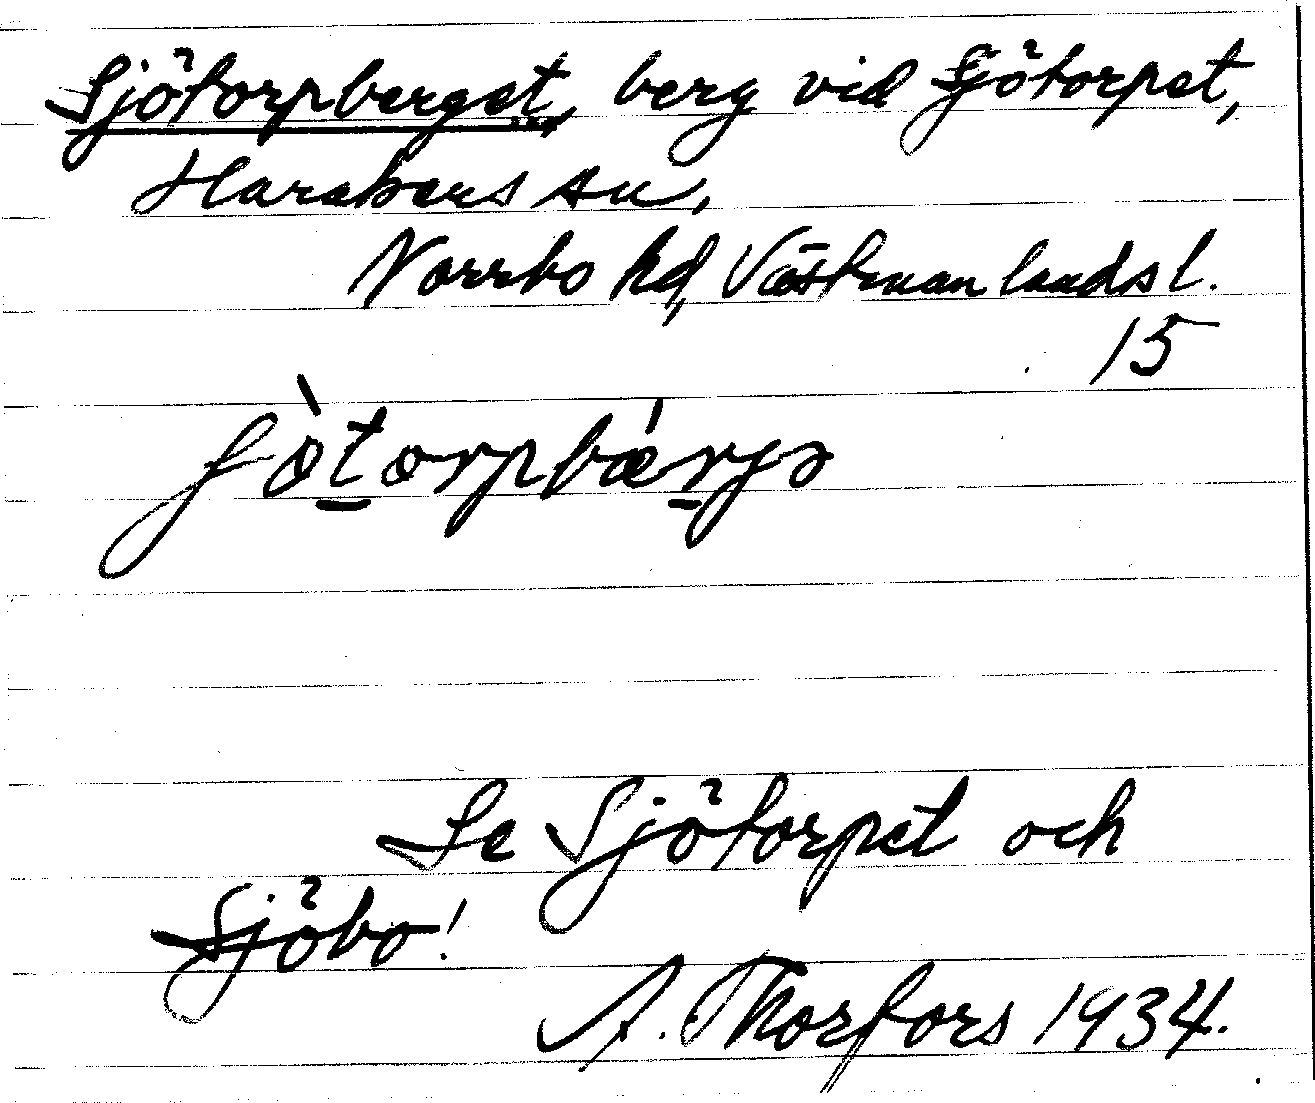 Sjötorpberget, berg vid Sjötorpet,
Harakers sn,
Norrbo hd, Västmanlands l.
15
ʃø̀t̠orpbǽr̠jə
Se Sjötorpet och
Sjöbo!
A. Thorfors 1934.